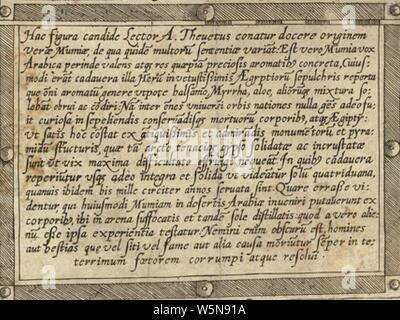 Hac figura candide Lector A. Theuetus conatur docere originem
veræ Mumiæ, de qua quidē multorū sententiæ variāt. Æst vero Mumia vox
Arabica perinde valens atq; res quæpiā preciosis aromatib; concreta, Cuius;
modi erāt cadauera illa Herū in vetustissimis Ægyptiorū sepulchris reperta
que oni aromatū genere vtpote balsamo, Myrrha, aloe, aliorūq; mixtura so;
lebāt obrui ac cōdiri: Nā inter ōnes vniuersi orbis nationes nulla gēs adeo fu;
it curiosa in sepeliendis conseruādisq; mortuorū corporib; atq; Ægipty:
vt satis hoc cōstat ex antiquissimis et admirādis monumētorū et pyra;
midū structuris, quæ tā recto tenaciq; gypso solidatæ ac incrustatæ
sunt vt vix maxima difficultate effringi nequeāt in quib; cadauera
reperiūtur vsq; adeo integra et solida vt videātur solū quatriduana,
quanuis ibidem bis mille circiter annos seruata sint. Quare errasse vi;
dentur qui huiusmodi Mumiam in desertis Arabiæ inueniri putauerunt ex
corporib; ibi in arena suffocatis et tandē sole distillatis: quod a vero alie;
nū esse ipsa experientia testatur. Nemini enim obscurū est, homines
aut bestias que vel siti vel fame aut alia causa moriūtur sēper in te;
terrimum fætorem corrumpi atque resolui.
alamy stock photo
W5N91A